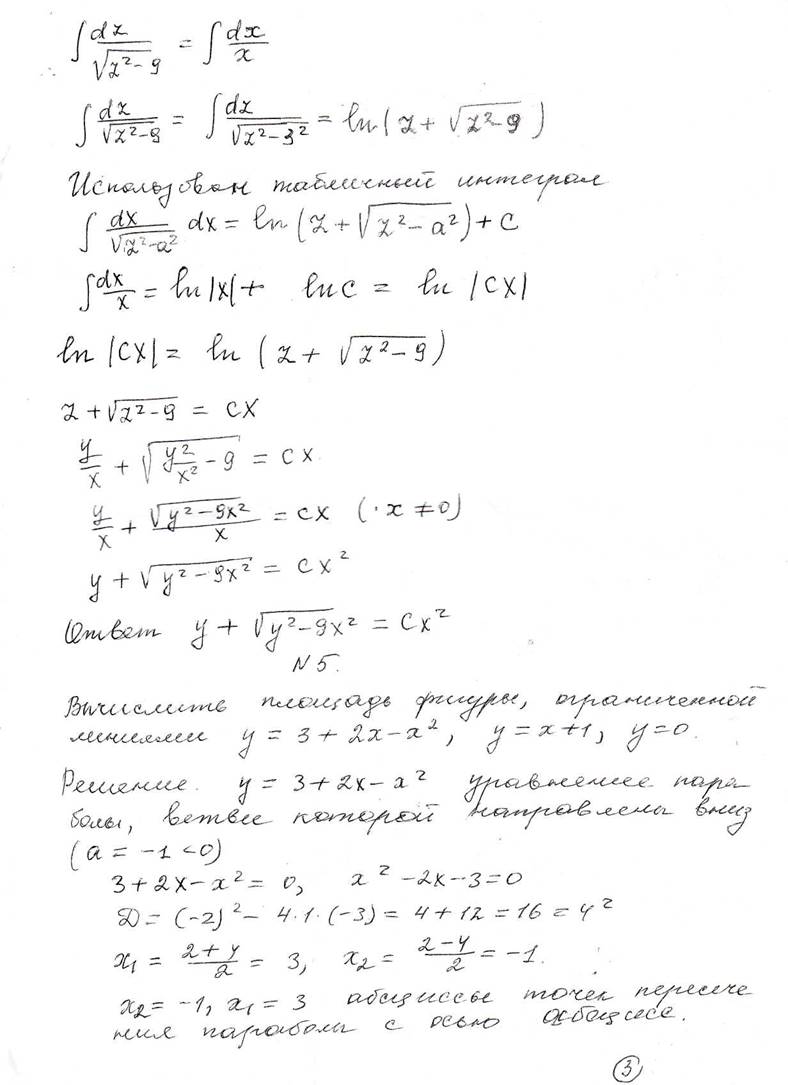 ∫ dz/√(z²-9) = ∫ dx/x
∫ dz/√(z²-9) = ∫ dz/√(z²-3²) = ln(z + √(z²-9))
Использован табличный интеграл
∫ dx/√(z²-a²) dx = ln(z + √(z²-a²)) + C
∫ dx/x = ln|x| + lnc = ln |CX|
ln |CX| = ln (z + √(z²-9))
z + √(z²-9) = CX
y/x + √(y²/x² - 9) = CX
y/x + √(y²-9x²)/x = CX (·x ≠ 0)
y + √(y²-9x²) = CX²
Ответ y + √(y²-9x²) = CX²
N 5.
Вычислить площадь фигуры, ограниченной
линиями y = 3 + 2x - x², y = x+1, y=0.
Решение. y = 3+2x-x² уравнение пара
болы, ветвее которой направлены вниз
(a = -1 <0)
3+2x-x² = 0, x² -2x-3=0
D = (-2)² - 4·1·(-3) = 4+12 = 16 = 4²
x₁ = (2+4)/2 = 3, x₂ = (2-4)/2 = -1.
x₂ = -1, x₁ = 3 абсциссы точек пересече
ния параболы с осью абсцисс.
3